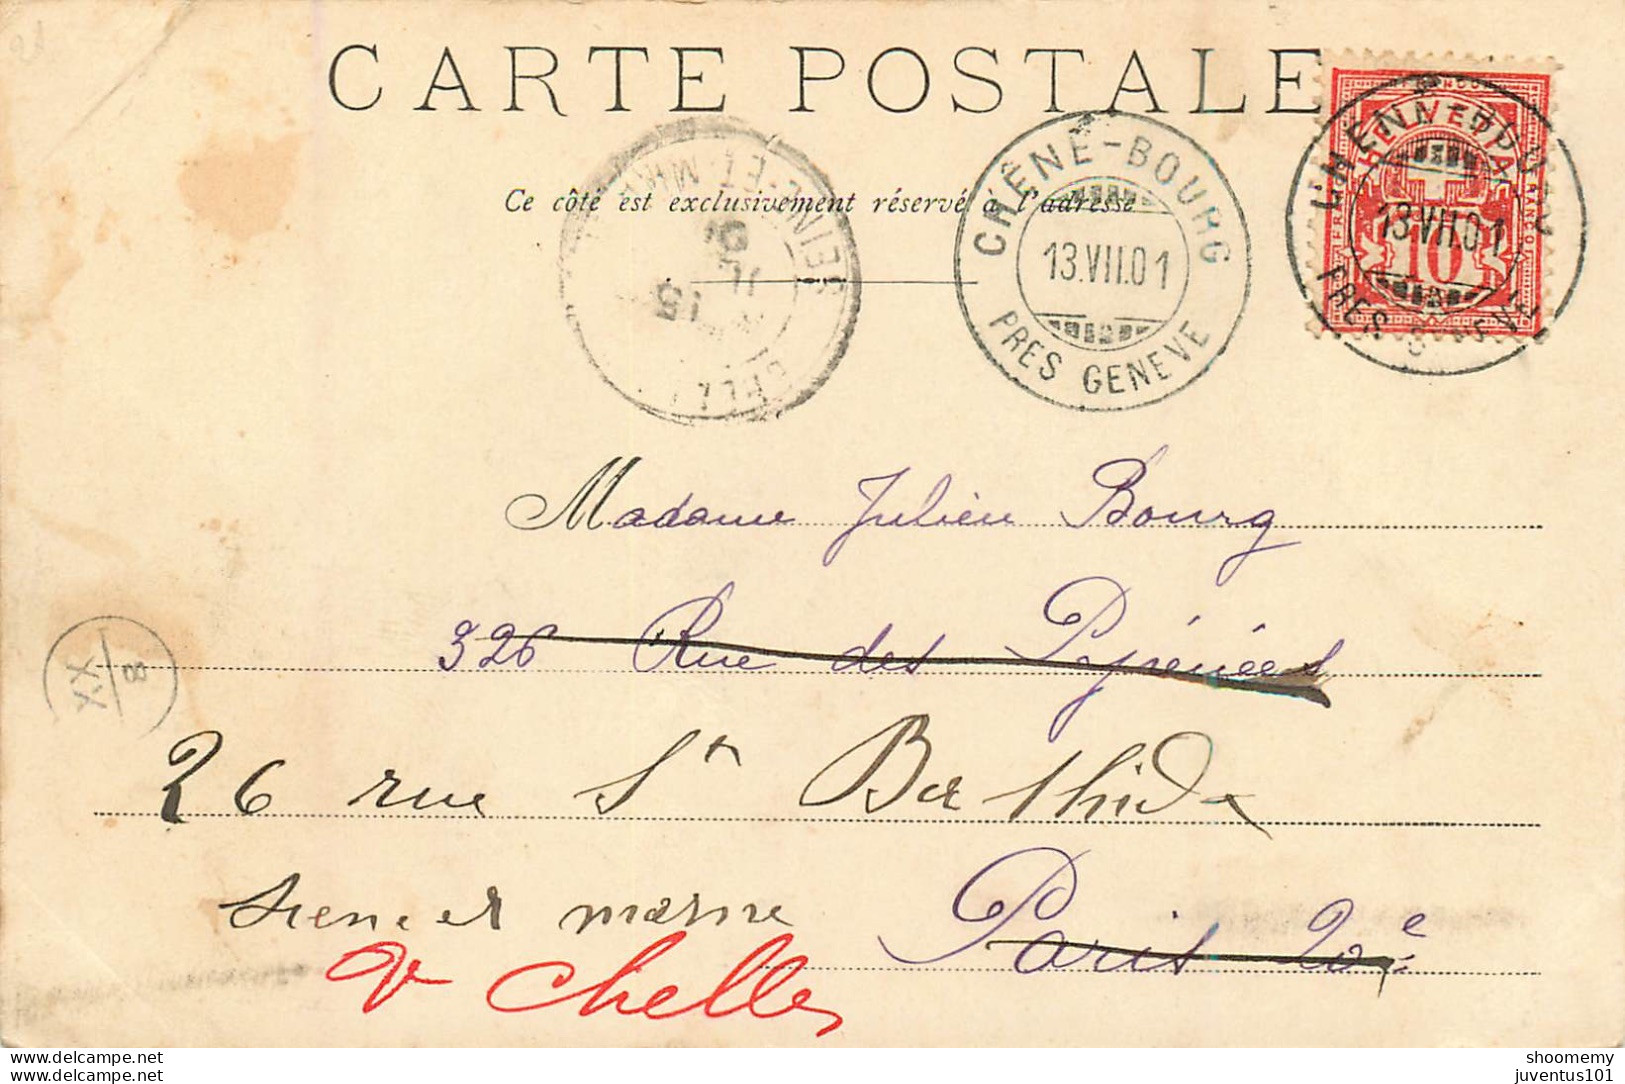 CARTE POSTALE
Ce côté est exclusivement réservé à l'adresse
SEINE-ET-M
15
CHÊNE-BOURG
13.VII.01
PRES GENEVE
HELVETIA
FRANCO
10
13.VII.01
PRES GENEVE
Madame Julien Bourg
326 Rue des Pyrénées
26 rue St
seine et marne Paris 20e
Chelles
B
XX
juventus101.net
juventus101.net
shoomemy
juventus101